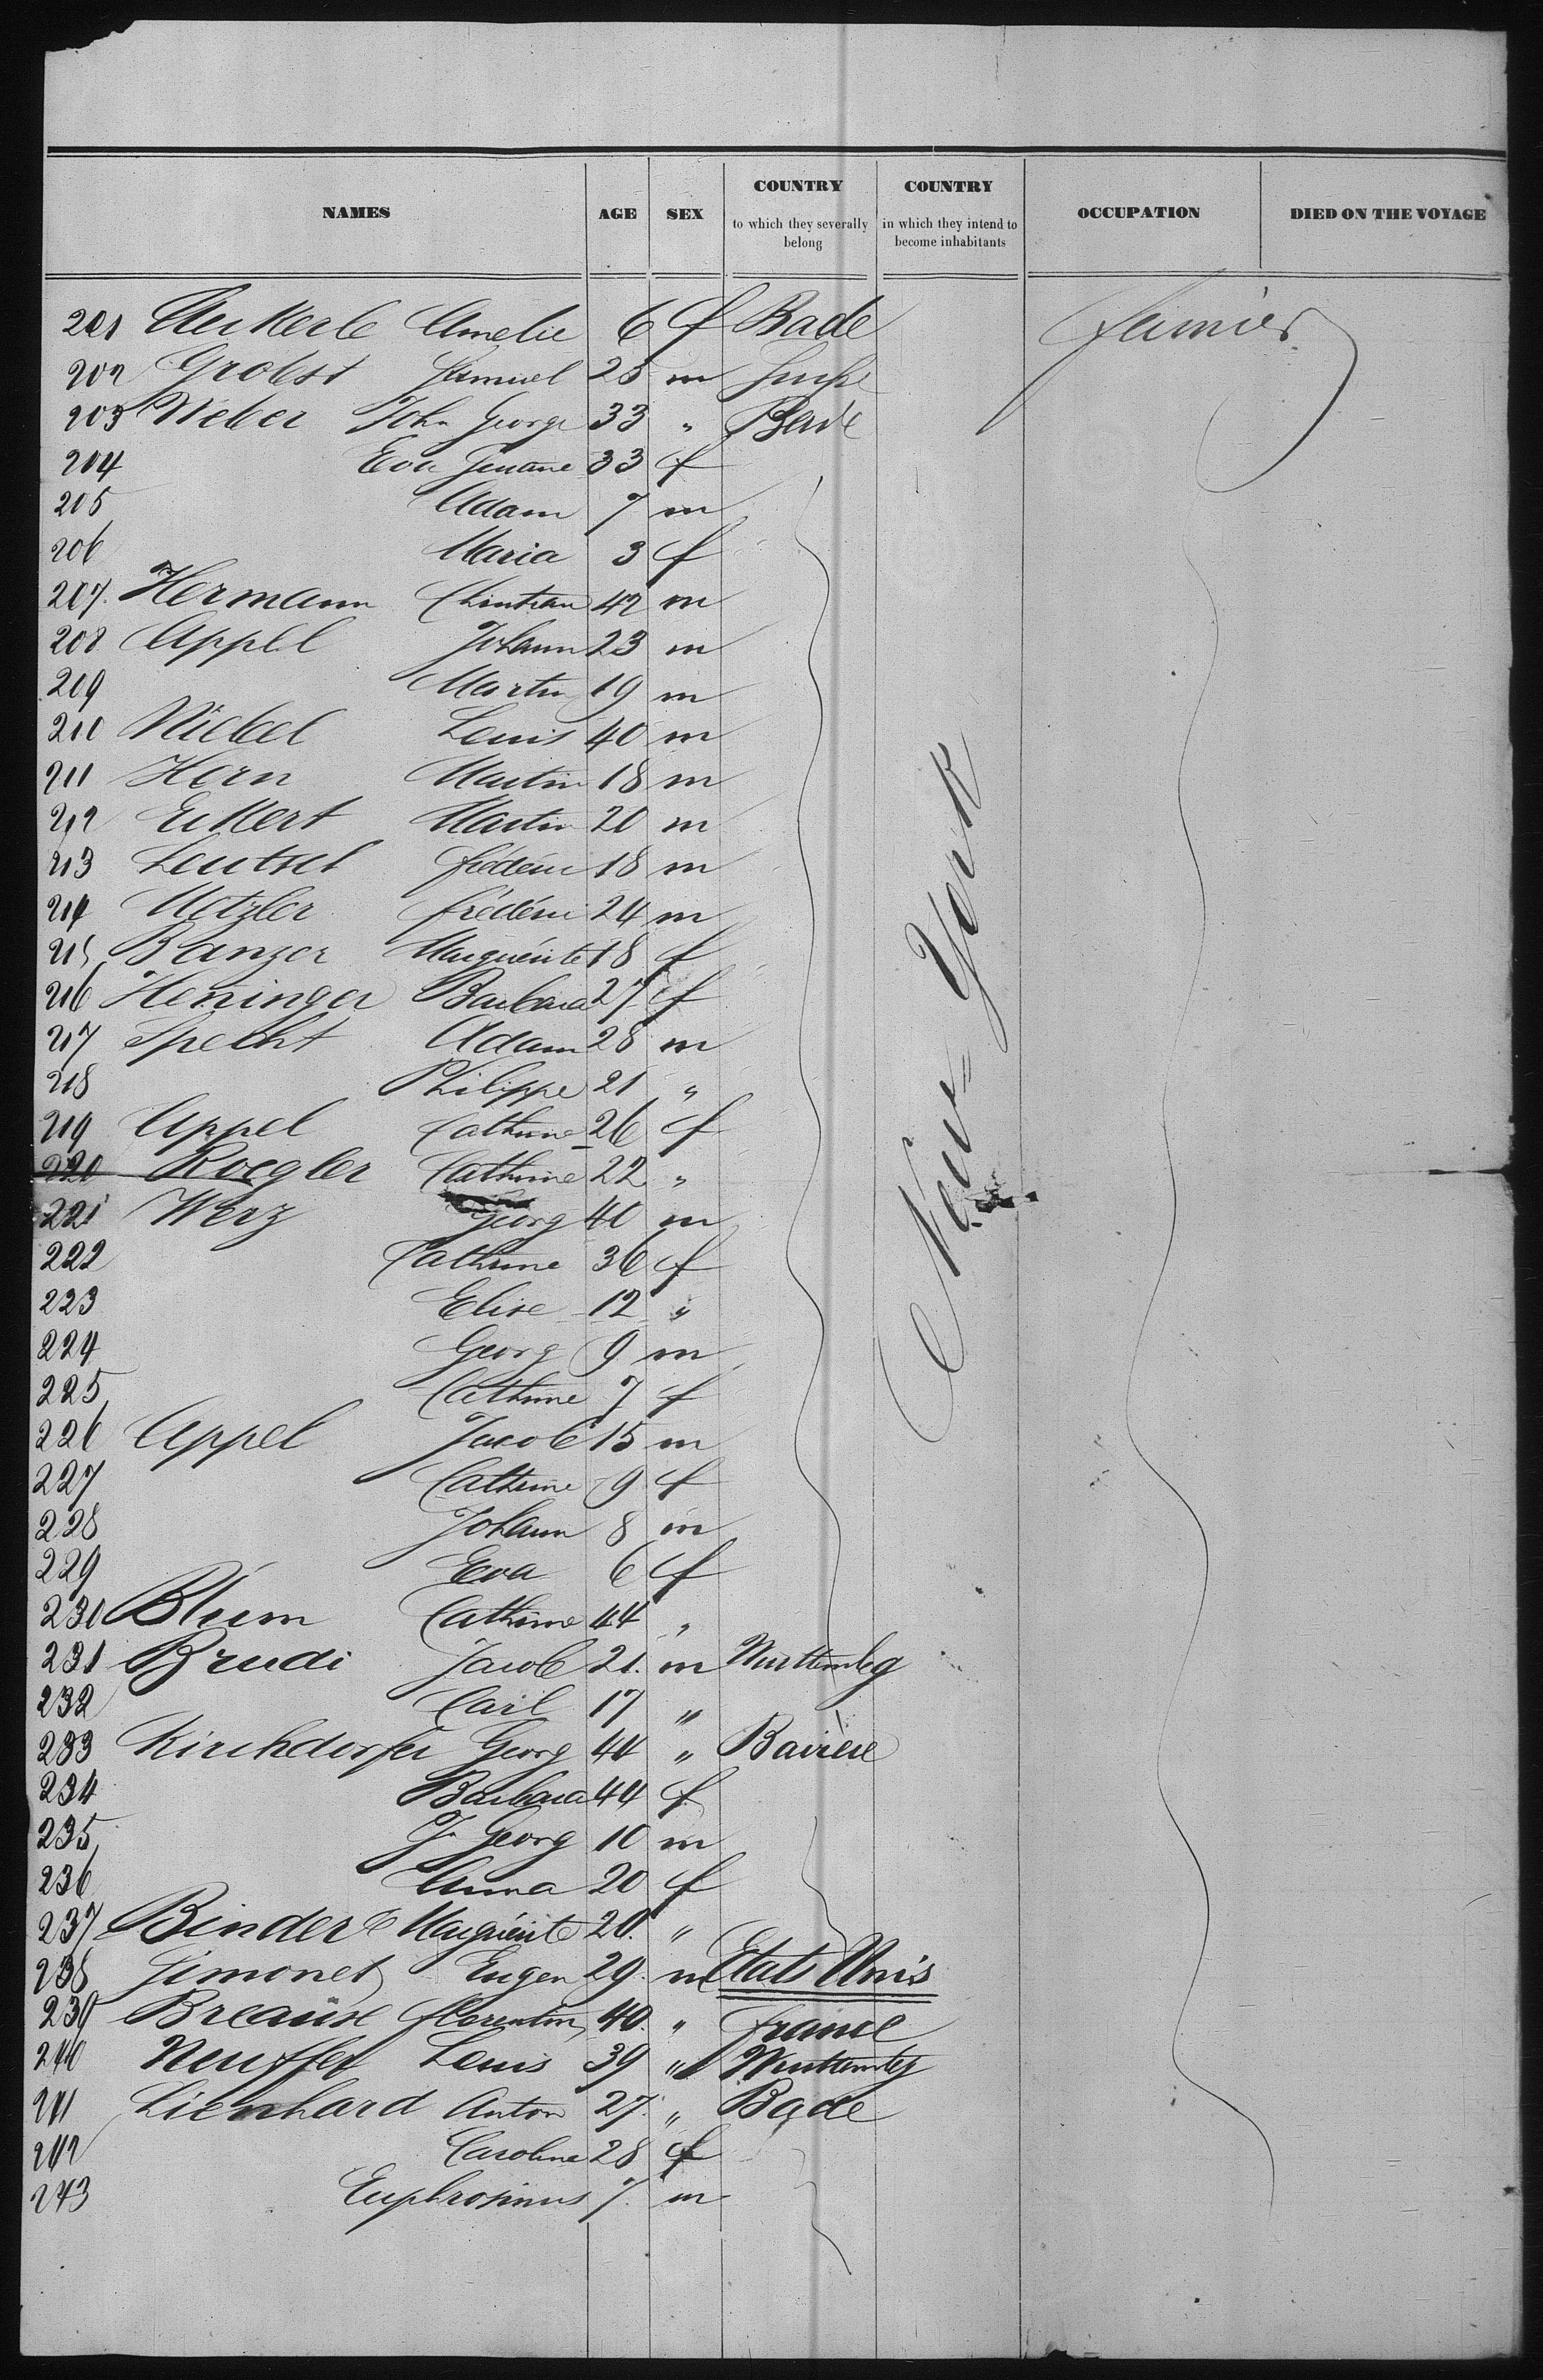 NAMES AGE SEX COUNTRY to which they severally belong COUNTRY in which they intend to become inhabitants OCCUPATION DIED ON THE VOYAGE
201 Amelie 6 f Bade
202 Grobst Samuel 25 m
203 Weber John George 33 " Bade
204 Eva 33 f
205 Adam 7 m
206 Maria 3 f
207. Hermann Christian 42 m
208 Appel Johann 23 m
209 Martin 19 m
210 Niebel Louis 40 m
211 Horn Martin 18 m
212 Eckert Martin 20 m
213 18 m
214 Metzler frédéric 24 m
215 Banzer Marguérite 18 f
216 Heninger Barbara 27 f
217 Specht Adam 28 m
218 Philippe 21 "
219 Appel Cathrine 26 f
220 Roegler Cathrine 22 "
221 Werz Georg 40 m
222 Cathrine 36 f
223 Elise 12 "
224 Georg 9 m
225 Cathrine 7 f
226 Appel Jacob 15 m
227 Cathrine 9 f
228 Johann 8 m
229 Eva 6 f
230 Blum Cathrine 44 "
231 Brudi Jacob 21. m Wurttembg
232 Carl 17 "
233 Kirchdorfer Georg 44 " Bavière
234 Barbara 44 f
235 J. Georg 10 m
236 Anna 20 f
237 Binder Marguérite 20. "
238 Simonet Eugen 29. m Etats Unis
239 Florentin 40. " France
240 Neuffer Louis 39 " Wurttembg
241 Lienhard Anton 27. " Bade
242 Caroline 28 f
243 Euphrosinus 7. m
New-York